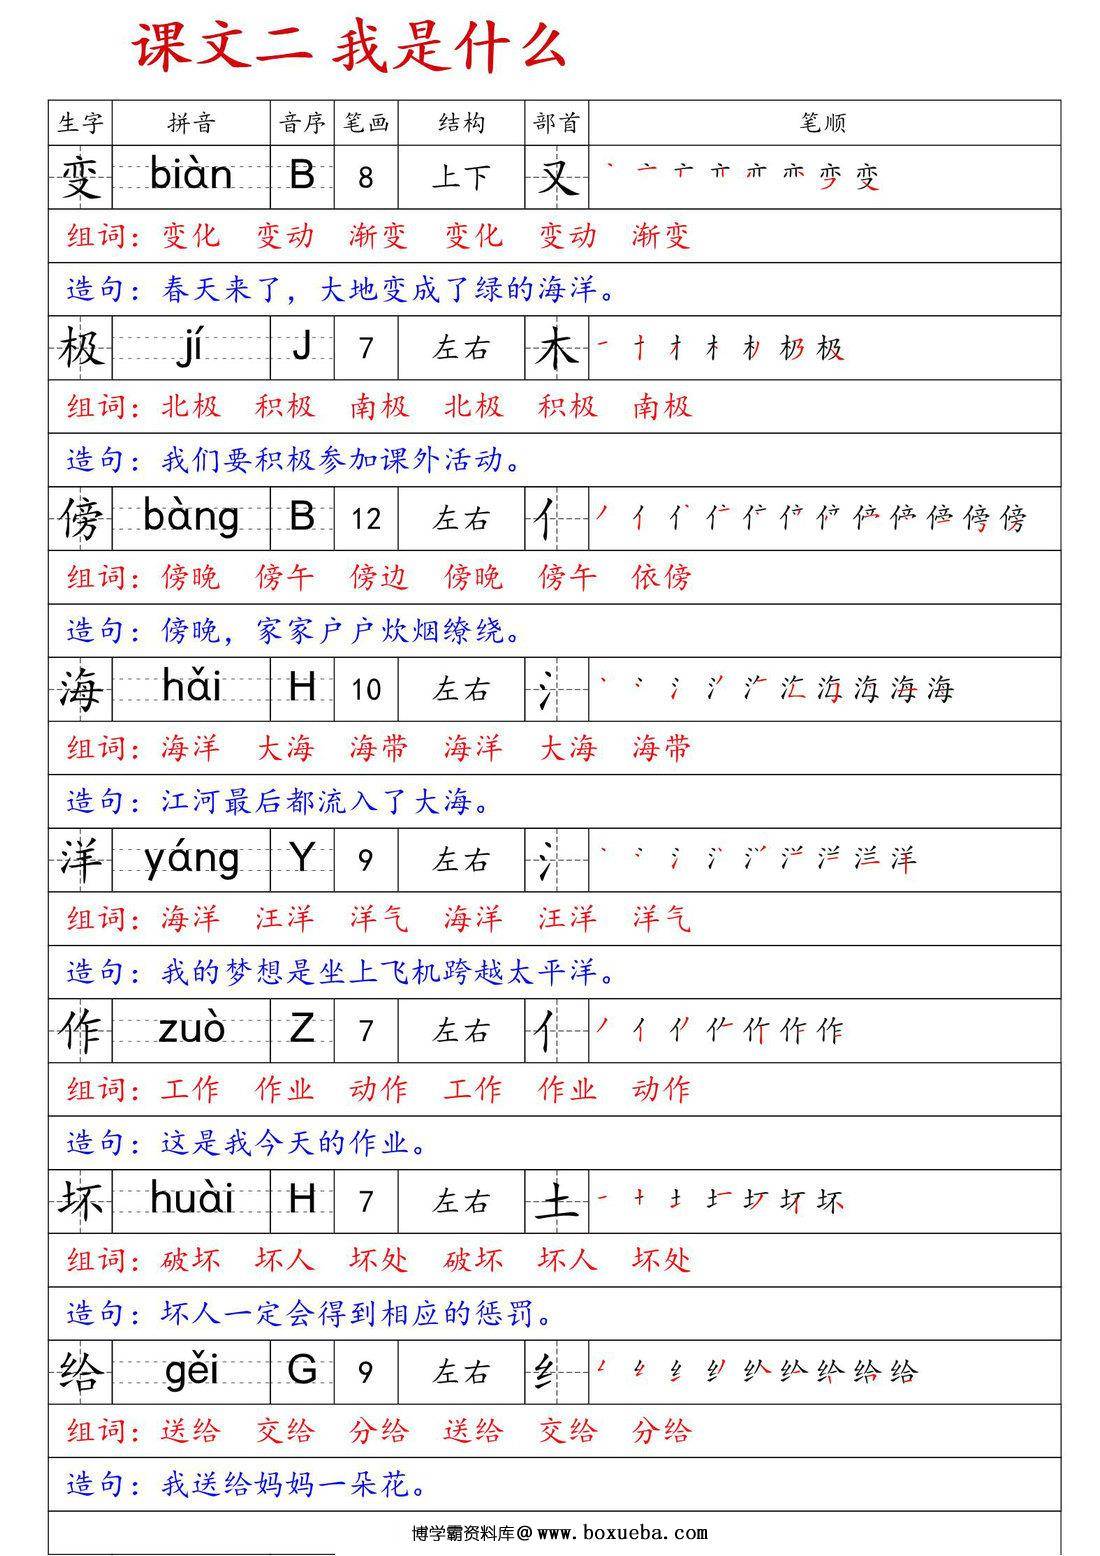 课文二 我是什么
生字 拼音 音序 笔画 结构 部首 笔顺
变 biàn B 8 上下 又 丶 亠 变
组词：变化 变动 渐变 变化 变动 渐变
造句：春天来了，大地变成了绿的海洋。
极 jí J 7 左右 木 一 十 才 木 极
组词：北极 积极 南极 北极 积极 南极
造句：我们要积极参加课外活动。
傍 bàng B 12 左右 亻 丿 亻 傍
组词：傍晚 傍午 傍边 傍晚 傍午 依傍
造句：傍晚，家家户户炊烟缭绕。
海 hǎi H 10 左右 氵 丶 冫 氵 海
组词：海洋 大海 海带 海洋 大海 海带
造句：江河最后都流入了大海。
洋 yáng Y 9 左右 氵 丶 冫 氵 洋
组词：海洋 汪洋 洋气 海洋 汪洋 洋气
造句：我的梦想是坐上飞机跨越太平洋。
作 zuò Z 7 左右 亻 丿 亻 作
组词：工作 作业 动作 工作 作业 动作
造句：这是我今天的作业。
坏 huài H 7 左右 土 一 十 土 坏
组词：破坏 坏人 坏处 破坏 坏人 坏处
造句：坏人一定会得到相应的惩罚。
给 gěi G 9 左右 纟 纟 给
组词：送给 交给 分给 送给 交给 分给
造句：我送给妈妈一朵花。
博学霸资料库@www.boxueba.com